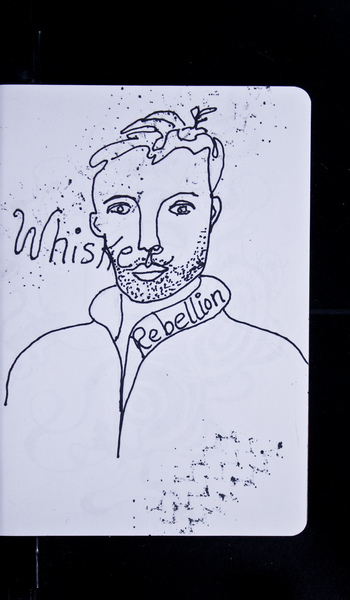 Whisker
Rebellion